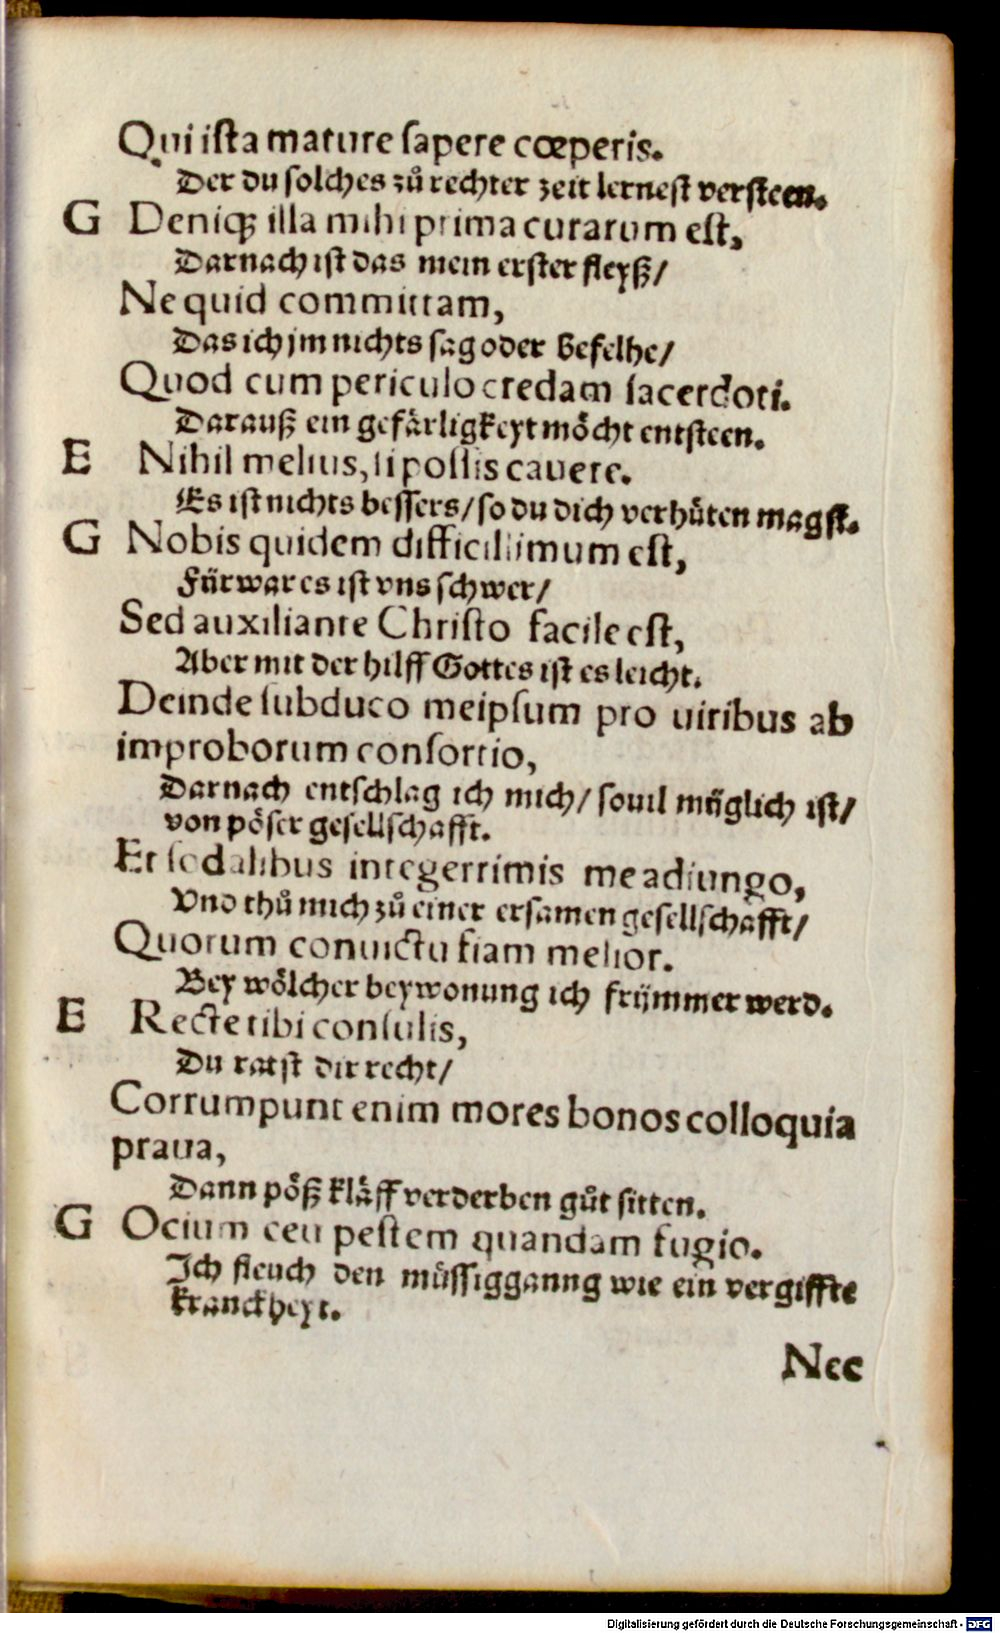 Qui iſta mature ſapere cœperis.
Der du ſolches zů rechter zeit lerneſt verſteen.
G Deniq; illa mihi prima curarum eſt,
Darnach iſt das mein erſter fleyß/
Ne quid committam,
Das ich jm nichts ſag oder befelhe/
Quod cum periculo credam ſacerdoti.
Darauß ein gefärligkeyt möcht entſteen.
E Nihil melius, ſi poſſis cauere.
Es iſt nichts beſſers/ ſo du dich verhüten magſt.
G Nobis quidem difficillimum eſt,
Fürwar es iſt vns ſchwer/
Sed auxiliante Chriſto facile eſt,
Aber mit der hilff Gottes iſt es leicht.
Deinde ſubduco meipſum pro uiribus ab
improborum conſortio,
Darnach entſchlag ich mich/ ſouil müglich iſt/
von pöſer geſellſchafft.
Et ſodalibus integerrimis me adiungo,
Vnd thů mich zů einer erſamen geſellſchafft/
Quorum conuictu fiam melior.
Bey wölcher beywonung ich frümmer werd.
E Recte tibi conſulis,
Du ratſt dir recht/
Corrumpunt enim mores bonos colloquia
praua,
Dann pöß kläff verderben gůt ſitten.
G Ocium ceu peſtem quandam fugio.
Ich fleuch den müſſigganng wie ein vergiffte
kranckheyt.
Nec
Digitalisierung gefördert durch die Deutsche Forschungsgemeinschaft - DFG